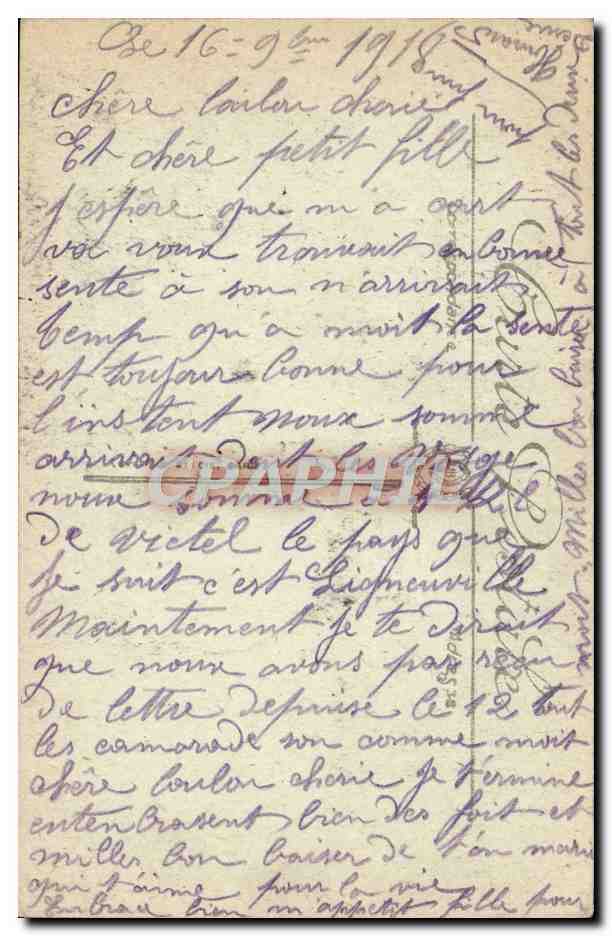 Le 16 = 9bre 1918
chère loulou cherie
Et chère petit fille
J'espère que m'a cart
va voux trouvait en bonne
sente à son n'arrivait,
temp qu'a moit la sente
est toujour bonne pour
l'instent noux somme
arrivait dant les Vosge
noux somme à
de victel le pays que
Je suit c'est Ligneuville
Maintement Je te dirait
que noux avons pas reçu
de lettre depuise le 12 tout
les camarade son comme moit
chère loulou cherie Je t'ermine
enten brasent bien des foit et
milles bon baiser de t'on marie
qui t'aime pour la vie
Embrace bien m'appetit fille pour
moit. Milles bon baiser a tout les deux
Carte Postale
Correspondance
Adresse
CPAPHIL